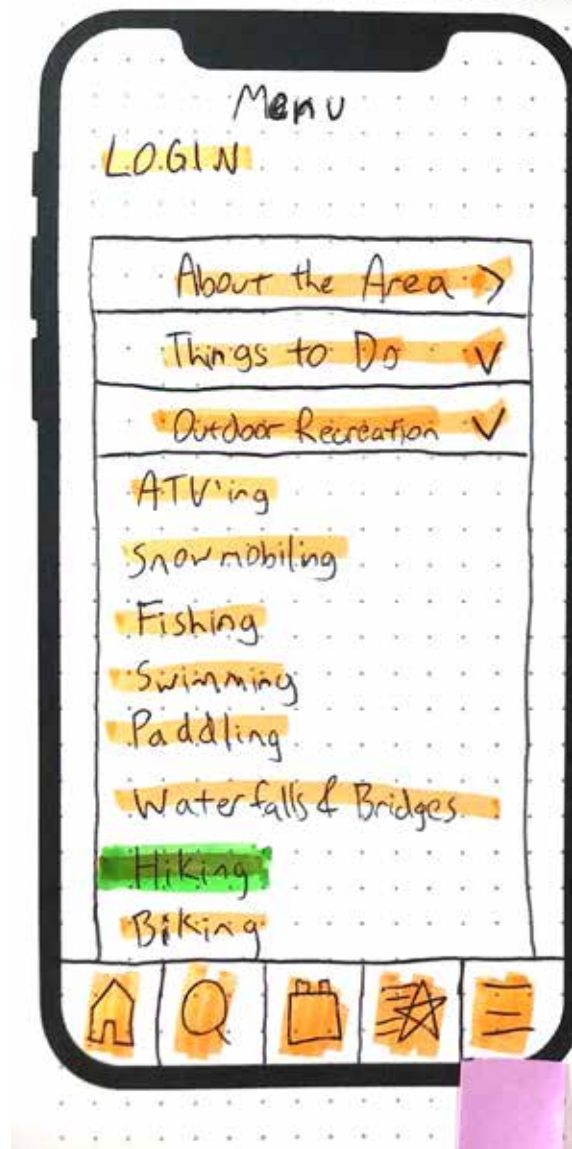 Menu
LOGIN
About the Area >
Things to Do V
Outdoor Recreation V
ATV'ing
Snowmobiling
Fishing
Swimming
Paddling
Waterfalls & Bridges
Hiking
Biking